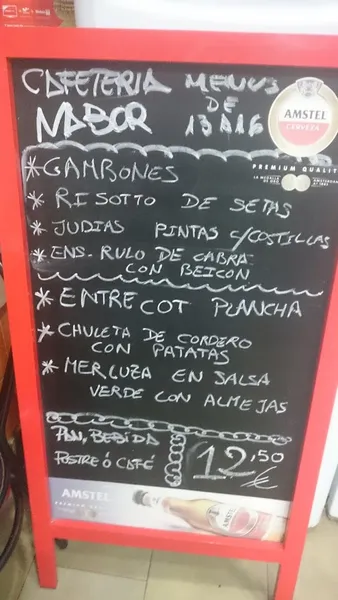 CAFETERIA MENUS
NABOR DE
13 A 16
AMSTEL
CERVEZA
PREMIUM QUALIT
*GAMBONES
* RISOTTO DE SETAS
* JUDIAS PINTAS C/COSTILLAS
* ENS. RULO DE CABRA
CON BEICON
* ENTRECOT PLANCHA
* CHULETA DE CORDERO
CON PATATAS
* MERLUZA EN SALSA
VERDE CON ALMEJAS
PAN, BEBIDA
POSTRE Ó CAFÉ
12,50
€
AMSTEL
AMSTEL